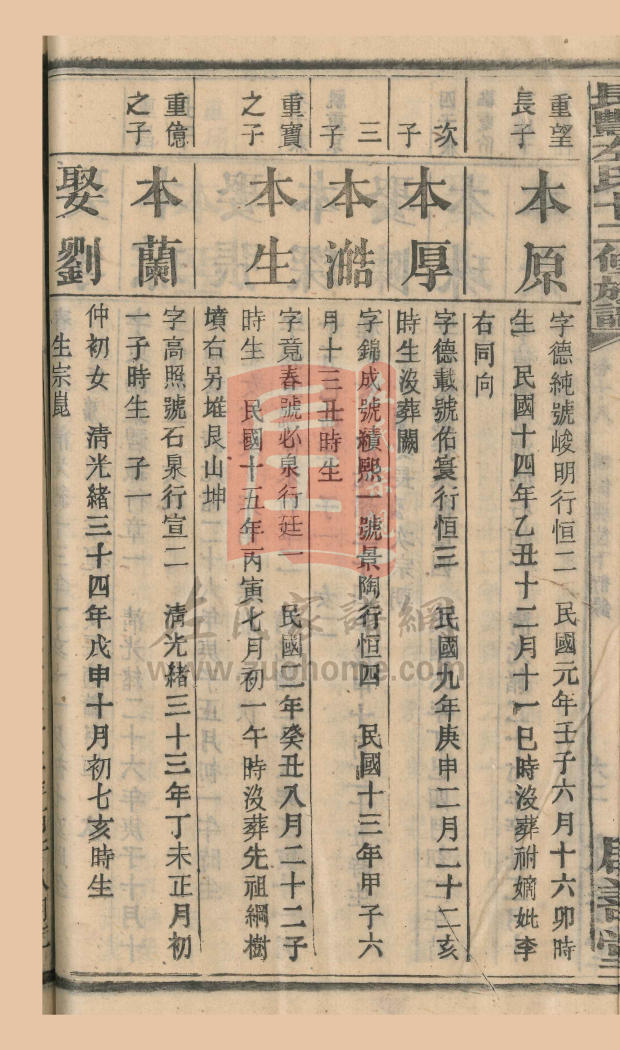 長豐左氏十二修族譜
重望
長子
本原
字德純號峻明行恒二 民國元年壬子六月十六卯時
生 民國十四年乙丑十二月十一巳時沒葬祔嫡妣李
右同向
次
子
本厚
字德載號佑寰行恒三 民國九年庚申二月二十二亥
時生沒葬闕
三
子
本澔
字錦成號績熙一號景陶行恒四 民國十三年甲子六
月十三丑時生
重寶
之子
本生
字竟春號必泉行廷一 民國二年癸丑八月二十二子
時生 民國十五年丙寅七月初一午時沒葬先祖綱樹
墳右另堆艮山坤
重億
之子
本蘭
字高照號石泉行宣二 清光緒三十三年丁未正月初
一子時生 子一
娶劉
仲初女 清光緒三十四年戊申十月初七亥時生
生宗崑
左氏家譜網
www.zuohome.com